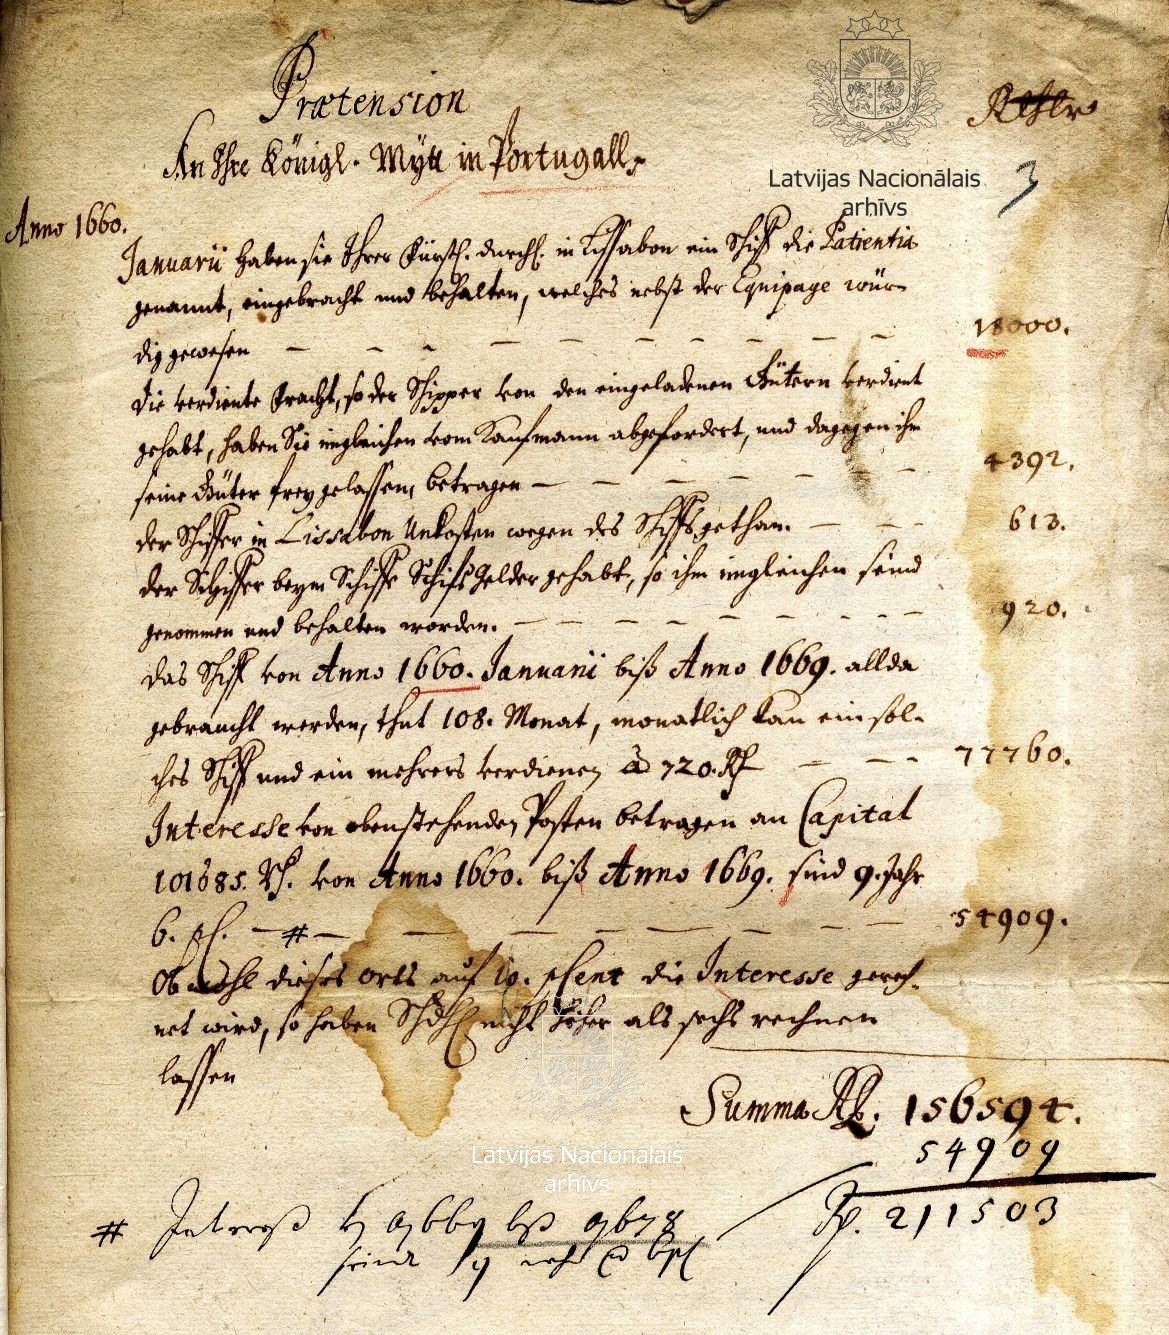 Prætension
Rthlr
An Ihre Königl. Mytt in Portugall.
Latvijas Nacionālais
arhīvs
3
Anno 1660.
Januarii haben sie Ihrer Fürstl. Durchl. in Lissabon ein Schiff die Patientia
genannt, eingebracht und behalten, welches nebst der Equipage wür-
dig gewesen — — — — — — — — — — 18000.
Die verdiente Fracht, so der Schipper von den eingeladenen Gütern verdient
gehabt, haben Sie imgleichen vom Kaufmann abgefordert, und dagegen ihm
seine Güter frey gelassen, betragen — — — — — — 4392.
der Schiffer in Lissabon Unkosten wegen des Schiffs gethan. — — — 613.
der Schiffer beym Schiffe Schiffs Gelder gehabt, so ihm imgleichen seind
genommen und behalten worden. — — — — — — — — 920.
das Schiff von Anno 1660. Januarii biß Anno 1669. allda
gebraucht worden, thut 108. Monat, monatlich kan ein sol-
ches Schiff und ein mehrers verdienen à 720. Rh — — — 77760.
Interesse von obenstehenden Posten betragen an Capital
101685. Rh. von Anno 1660. biß Anno 1669. sind 9. Jahr
6. pC. — # — — — — — — — — — 54909.
Obwohl dieses Orts auf 10. pCent die Interesse gerech-
net wird, so haben nicht höher als sechs rechnen
lassen
Summa Rh. 156594.
54909
211503
Latvijas Nacionālais
arhīvs
# Interesß 1669 bß 1678
seind 9